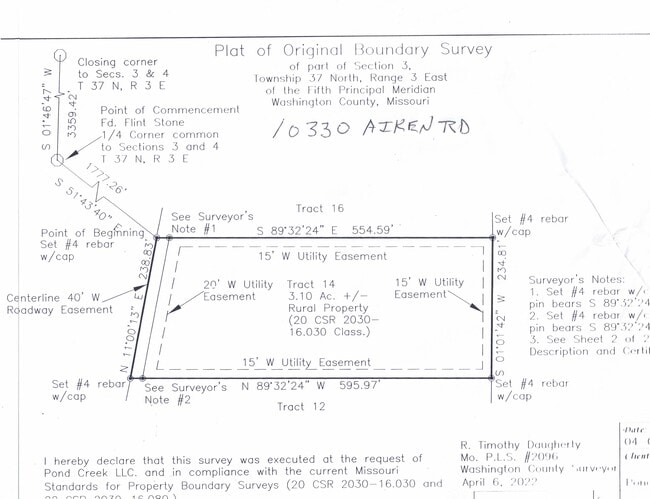 Plat of Original Boundary Survey
of part of Section 3,
Township 37 North, Range 3 East
of the Fifth Principal Meridian
Washington County, Missouri
10330 AIKEN RD
Closing corner
to Secs. 3 & 4
T 37 N, R 3 E
S 01°46'47" W
3359.42'
Point of Commencement
Fd. Flint Stone
1/4 Corner common
to Sections 3 and 4
T 37 N, R 3 E
1777.26'
S 51°43'40" E
Point of Beginning
Set #4 rebar
w/cap
See Surveyor's
Note #1
Tract 16
S 89°32'24" E 554.59'
Set #4 rebar
w/cap
15' W Utility Easement
N 11°00'13" E 238.83'
Centerline 40' W
Roadway Easement
20' W Utility
Easement
Tract 14
3.10 Ac. +/-
Rural Property
(20 CSR 2030-
16.030 Class.)
15' W Utility
Easement
S 01°01'42" W 234.81'
15' W Utility Easement
Set #4 rebar
w/cap
See Surveyor's
Note #2
N 89°32'24" W 595.97'
Set #4 rebar
w/cap
Tract 12
Surveyor's Notes:
1. Set #4 rebar w/c
pin bears S 89°32'24
2. Set #4 rebar w/c
pin bears S 89°32'24
3. See Sheet 2 of 2
Description and Certif
I hereby declare that this survey was executed at the request of
Pond Creek LLC. and in compliance with the current Missouri
Standards for Property Boundary Surveys (20 CSR 2030-16.030 and
20 CSR 2030-16.080.)
R. Timothy Daugherty
Mo. P.L.S. #2096
Washington County Surveyor
April 6, 2022
Date
04
Client
Pond